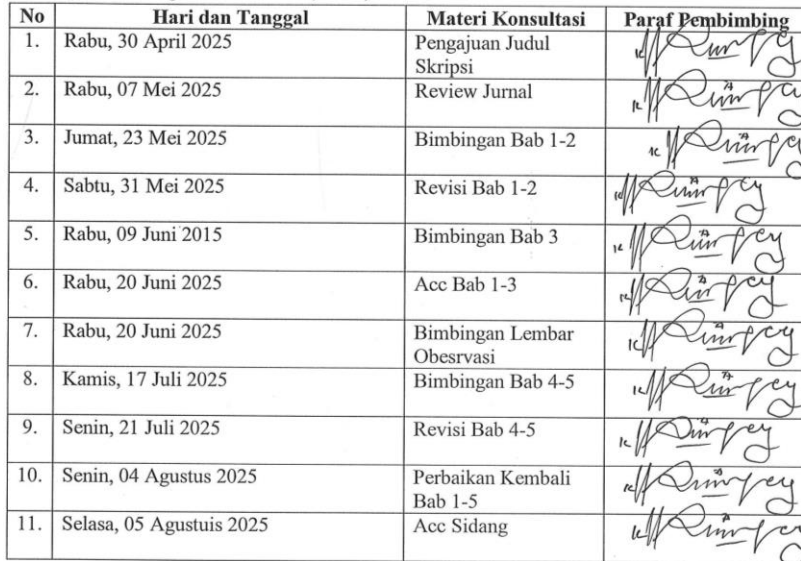 No Hari dan Tanggal Materi Konsultasi Paraf Pembimbing
1. Rabu, 30 April 2025 Pengajuan Judul
Skripsi
2. Rabu, 07 Mei 2025 Review Jurnal
3. Jumat, 23 Mei 2025 Bimbingan Bab 1-2
4. Sabtu, 31 Mei 2025 Revisi Bab 1-2
5. Rabu, 09 Juni 2015 Bimbingan Bab 3
6. Rabu, 20 Juni 2025 Acc Bab 1-3
7. Rabu, 20 Juni 2025 Bimbingan Lembar
Obesrvasi
8. Kamis, 17 Juli 2025 Bimbingan Bab 4-5
9. Senin, 21 Juli 2025 Revisi Bab 4-5
10. Senin, 04 Agustus 2025 Perbaikan Kembali
Bab 1-5
11. Selasa, 05 Agustuis 2025 Acc Sidang